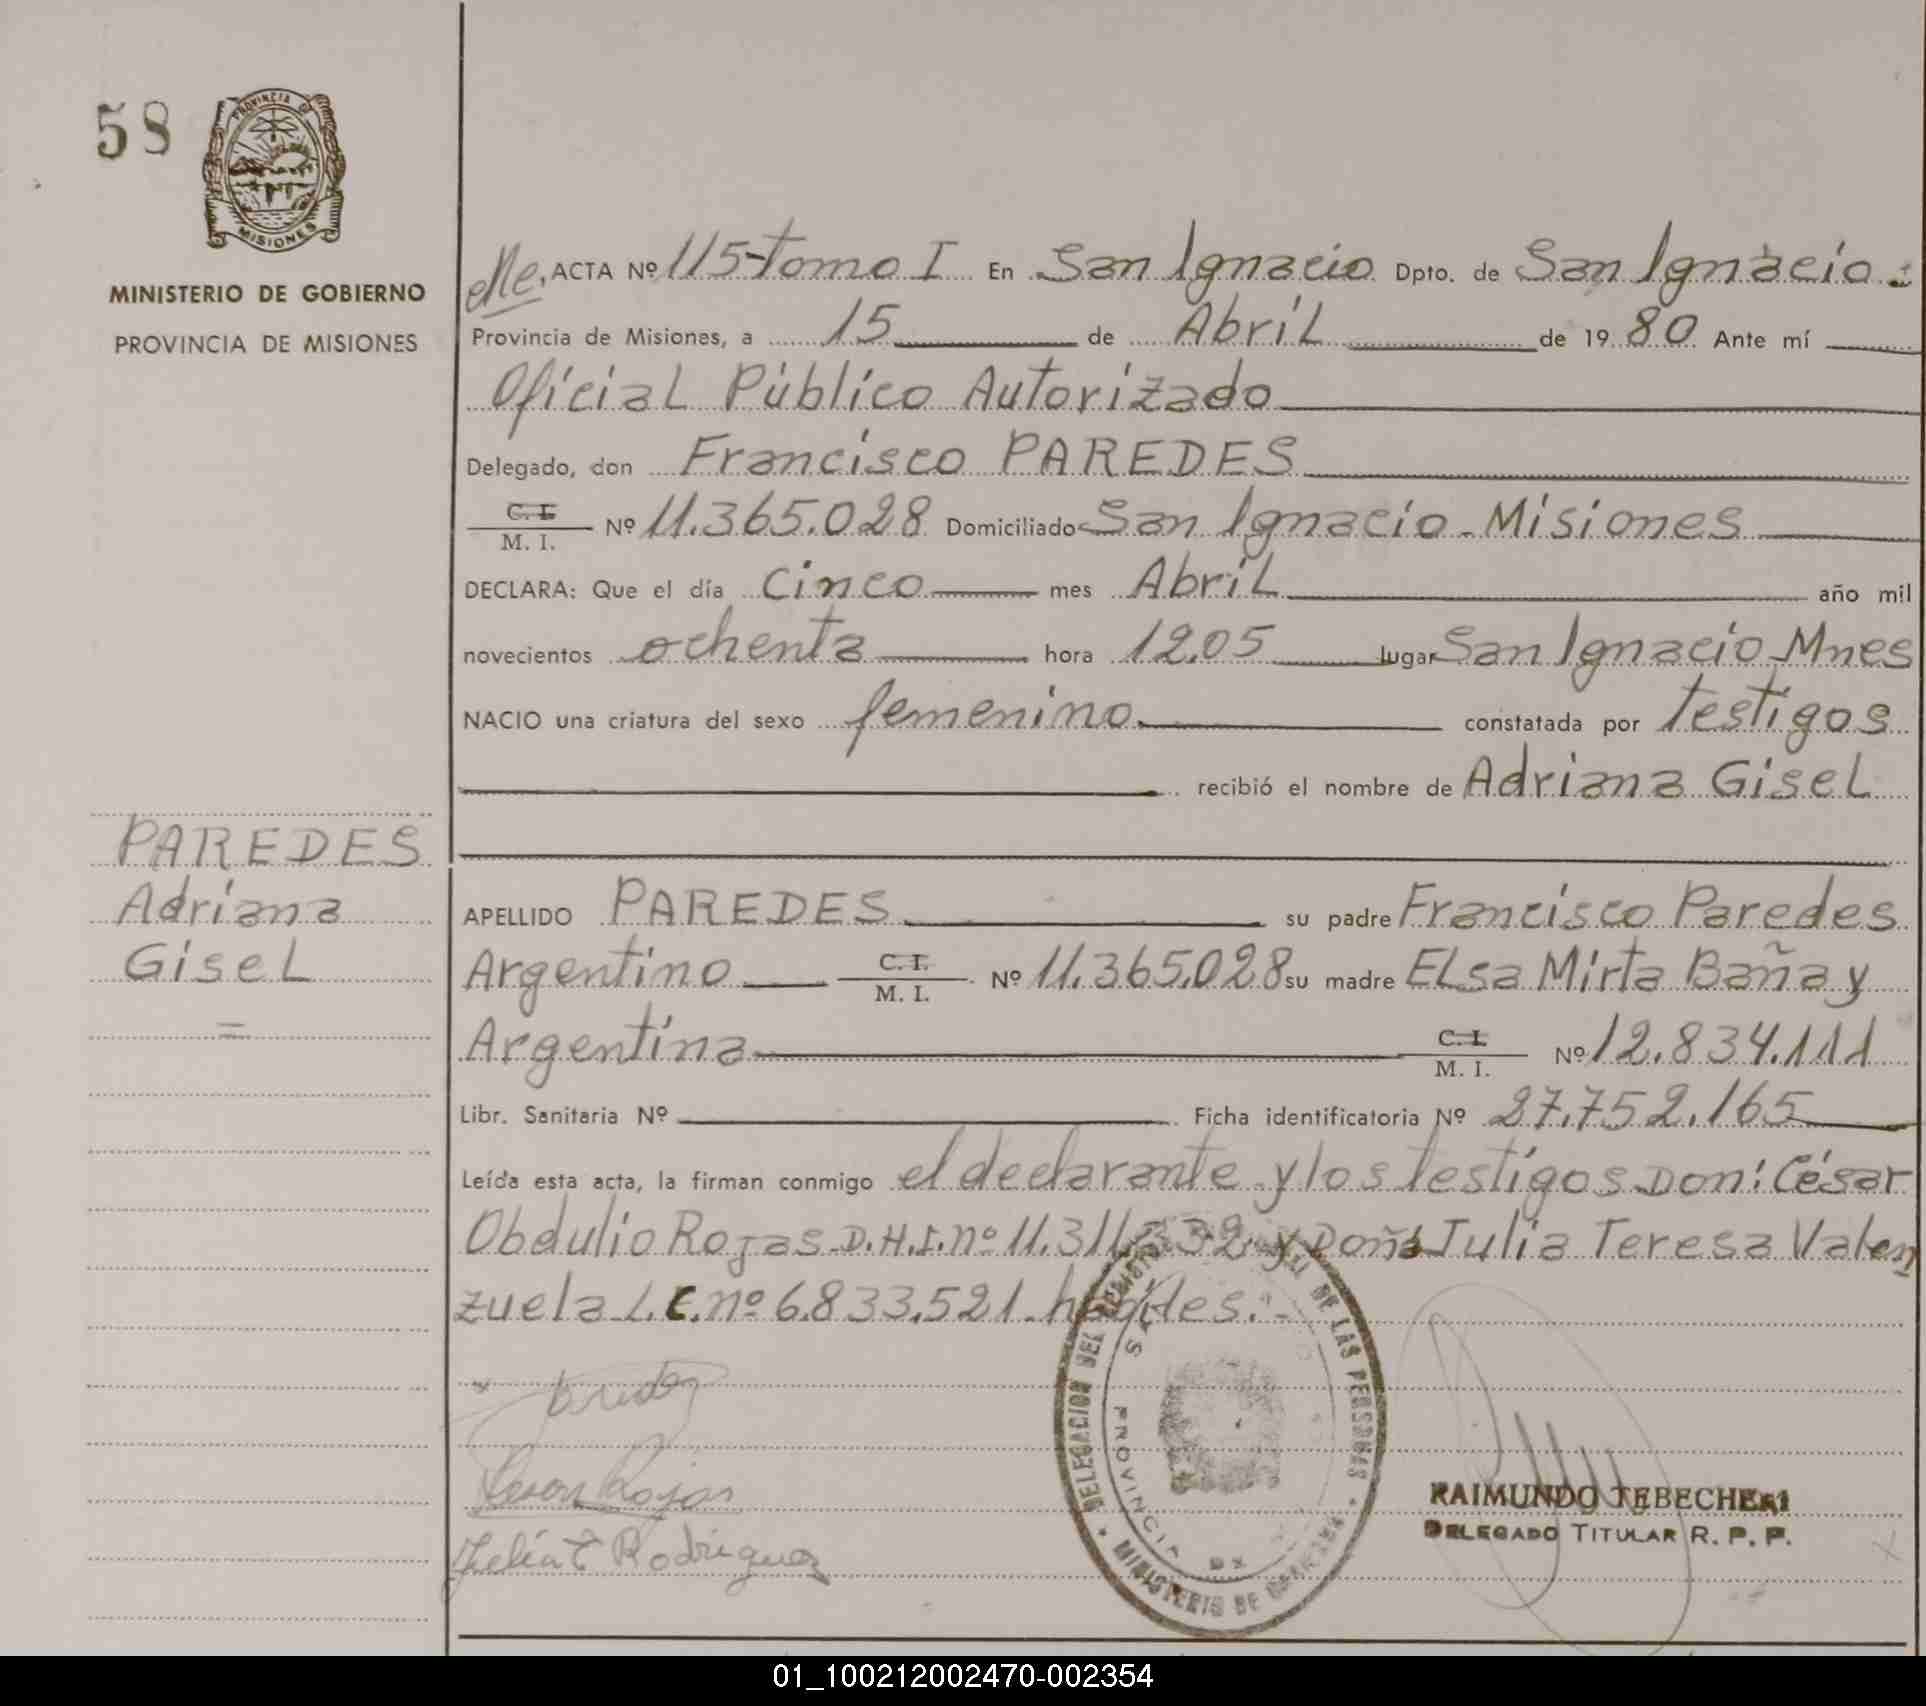 58
PROVINCIA DE
MISIONES
MINISTERIO DE GOBIERNO
PROVINCIA DE MISIONES
PAREDES
Adriana
Gisel
=
ACTA Nº 115-Tomo I En San Ignacio Dpto. de San Ignacio.
Provincia de Misiones, a 15 de Abril de 19 80 Ante mí
Oficial Público Autorizado
Delegado, don Francisco PAREDES
C. I.
M. I. Nº 11.365.028 Domiciliado San Ignacio-Misiones
DECLARA: Que el día cinco mes Abril año mil
novecientos ochenta hora 12,05 lugar San Ignacio Mnes
NACIO una criatura del sexo femenino. constatada por testigos
recibió el nombre de Adriana Gisel
APELLIDO PAREDES su padre Francisco Paredes
Argentino C. I.
M. I. Nº 11.365.028 su madre Elsa Mirta Bañay
Argentina C. I.
M. I. Nº 12.834.111
Libr. Sanitaria Nº Ficha identificatoria Nº 27.752.165
Leída esta acta, la firman conmigo el declarante y los testigos Don: César
Obdulio Rojas D.H.I. nº y Doña Julia Teresa Valen
zuela L.C. nº 6.833.521 hábiles.-
Rojas
Rodriguez
DELEGACION DEL REGISTRO DE LAS PERSONAS
PROVINCIA DE
MINISTERIO DE
RAIMUNDO TEBECHERI
DELEGADO TITULAR R. P. P.
01_100212002470-002354